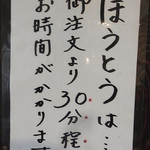 ほうとうは…
御注文より30分程
お時間がかかります